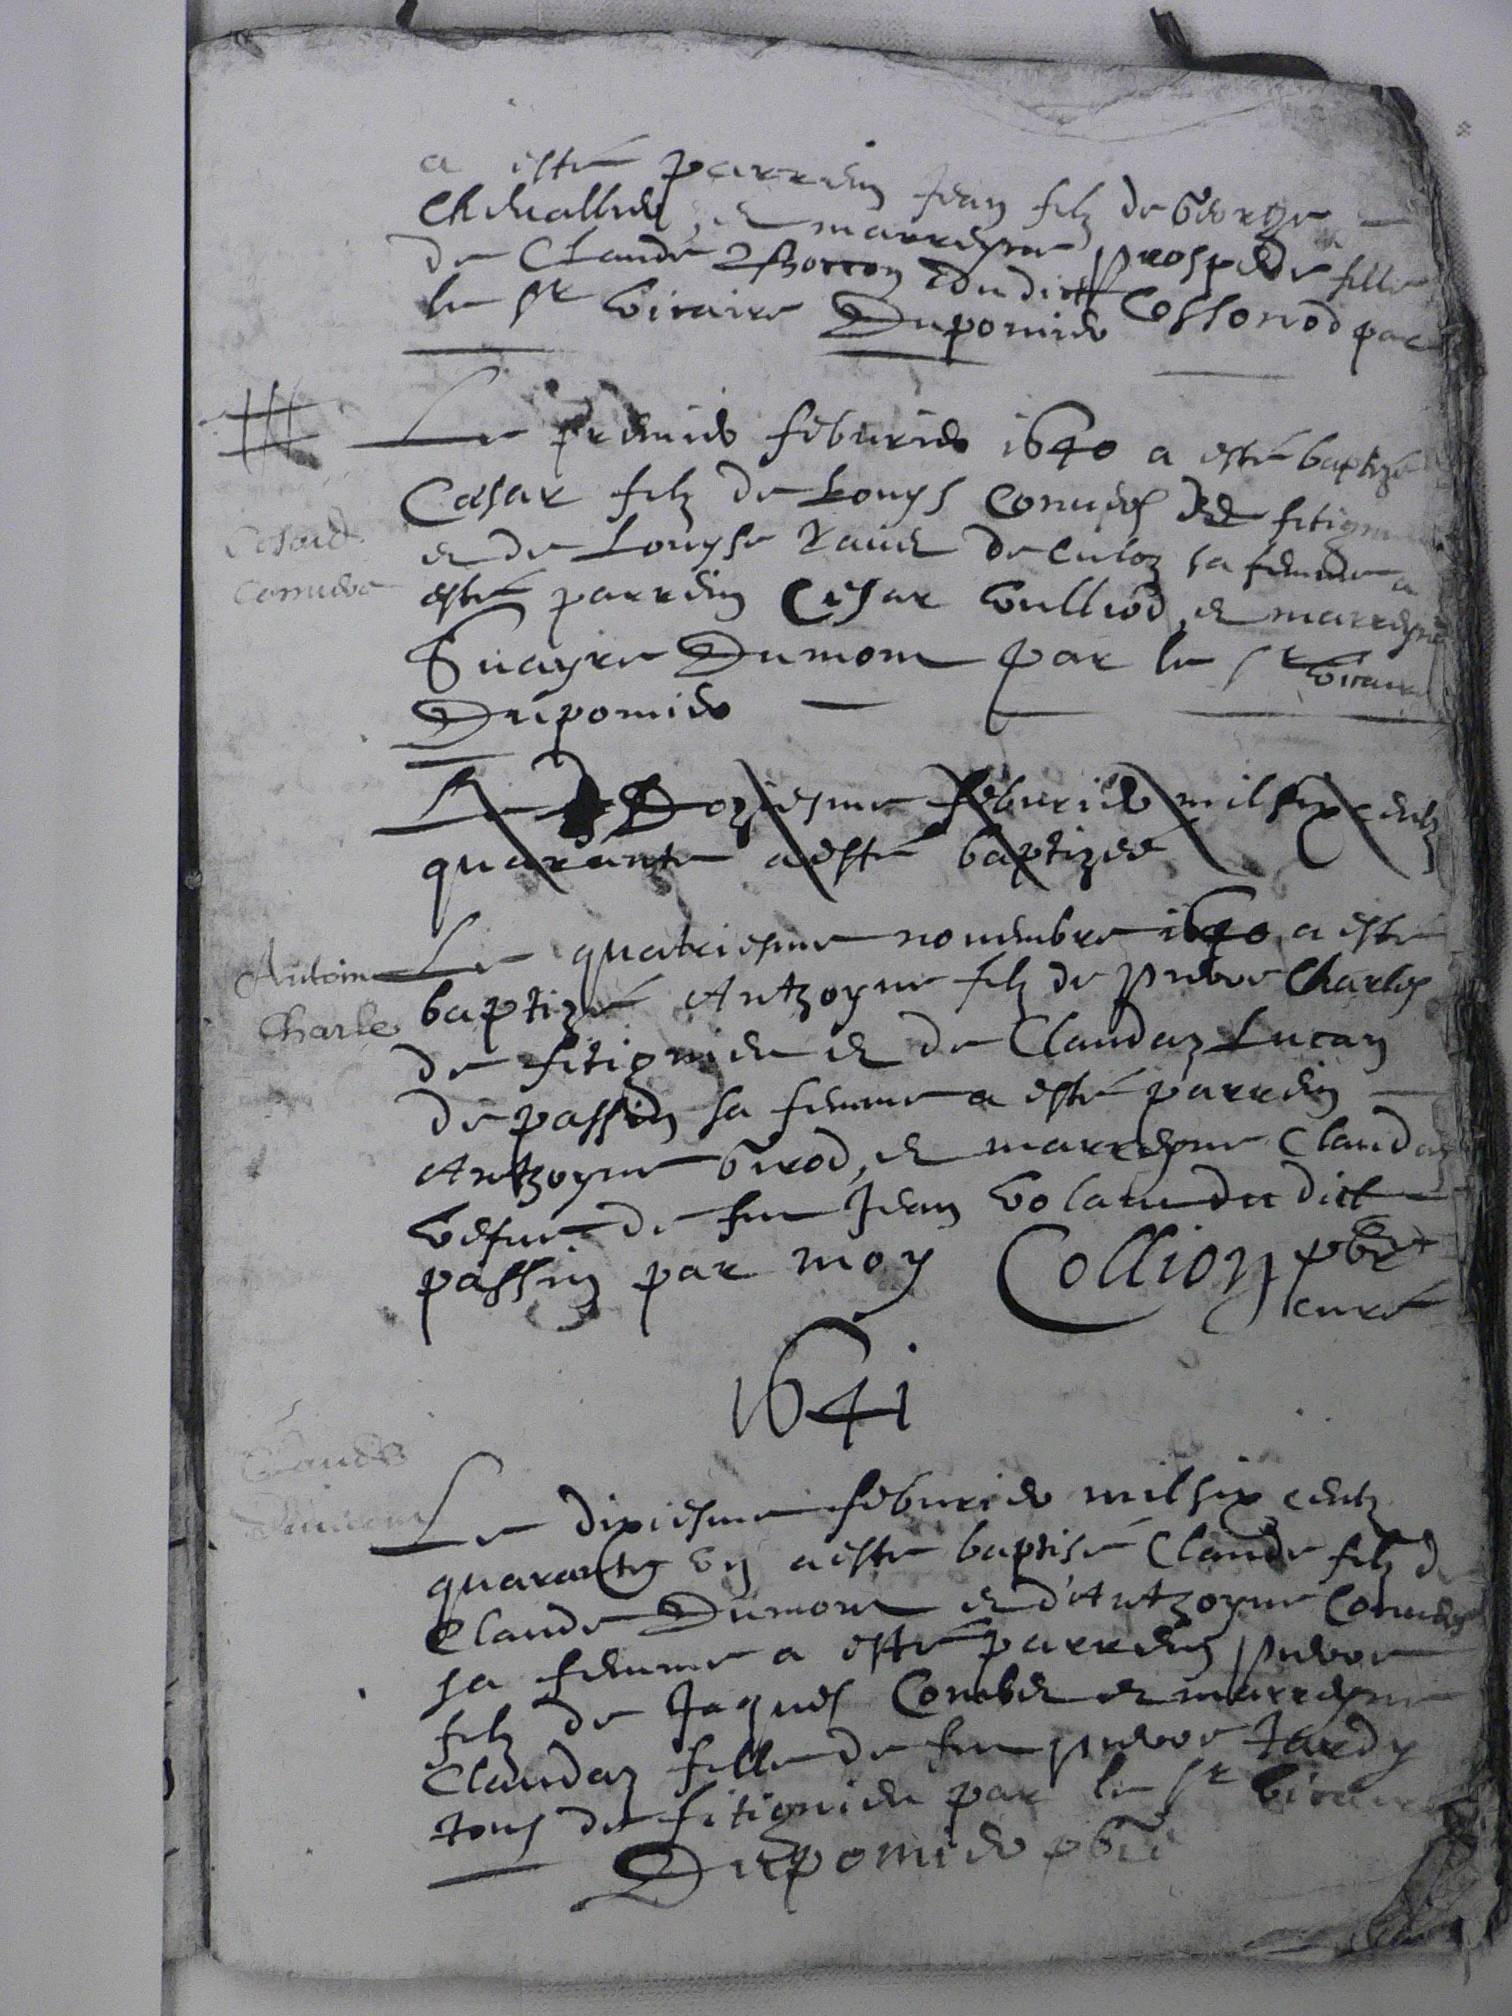 a esté parrein Jean filz de George
Chevallier, et marreyne prospede fille
de Claude dudict Cossonod par
le Sr vicaire Dupomier
Le premier febvrier 1640 a esté baptizé
Cesar filz de Louys de fitignieu
et de Louyse Ravet de Culoz sa femme a
esté parrein Cesar Vulliod, et marreyne
Dumont par le Sr vicaire
Dupomier
Le Doziesme febvrier mil six centz
quarante a esté baptizée
Antoine
Charle
Le quatriesme novembre 1640 a esté
baptizé Antzoyne filz de pierre Charles
de fitignieu et de Claudaz Lucan
de passin sa femme a esté parrein
Antzoyne Girod, et marreyne Claudaz
vefve de feu Jean Volant du dict
passin par moy Collion pbre
curé
1641
Claude
Le dixiesme febvrier mil six centz
quarante un a esté baptisé Claude filz d
Claude Dumont et d'Antzoyne
sa femme a esté parrein pierre
filz de Jaques Combet et marreyne
Claudaz fille de feu pierre Tardy
tous de fitignieu par le Sr vicaire
Dupomier pbre